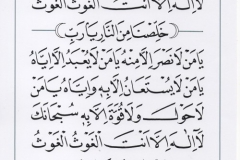 لَا إِلٰهَ إِلَّا أَنْتَ الْغَوْثُ الْغَوْثُ
خَلِّصْنَا مِنَ النَّارِ يَا رَبِّ
يَا مَنْ لَا نَصْرَ إِلَّا مِنْهُ يَا مَنْ لَا يُعْبَدُ إِلَّا إِيَّاهُ
يَا مَنْ لَا يُسْتَعَانُ إِلَّا بِهِ وَإِيَّاهُ يَا مَنْ
لَا حَوْلَ وَلَا قُوَّةَ إِلَّا بِهِ سُبْحَانَكَ
لَا إِلٰهَ إِلَّا أَنْتَ الْغَوْثُ الْغَوْثُ